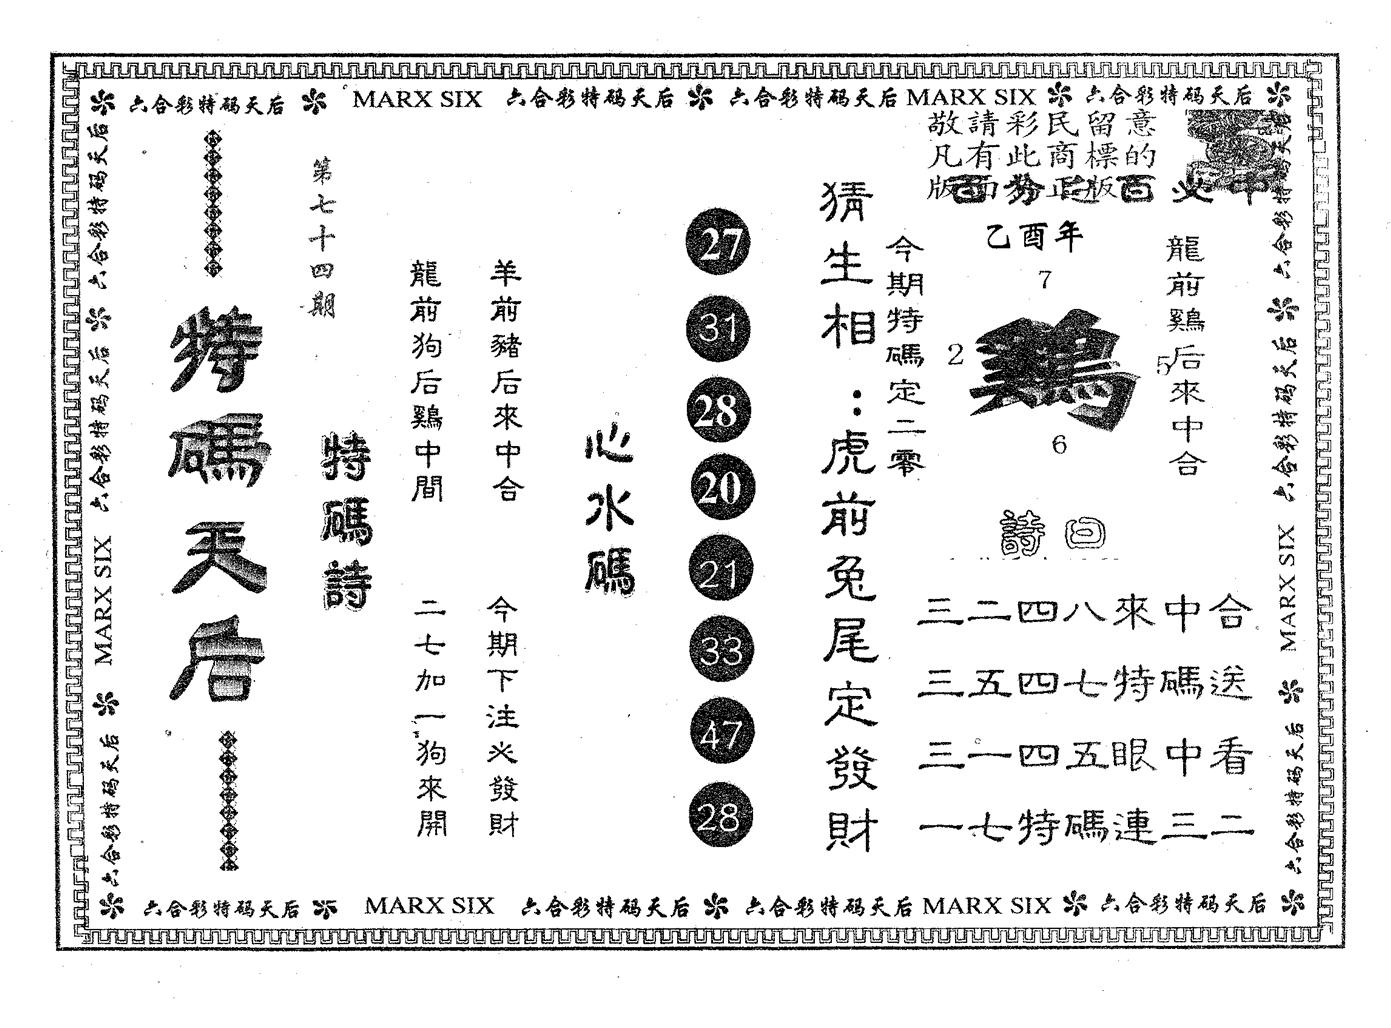 六合彩特码天后 MARX SIX 六合彩特码天后 六合彩特码天后 MARX SIX 六合彩特码天后
敬請彩民留意
凡有此商標的
版面為正版
百分之百必中
乙酉年
7
2 鷄 5
6
龍前鷄后來中合
今期特碼定二零
詩曰
三二四八來中合
三五四七特碼送
三一四五眼中看
一七特碼連三二
猜生相：虎前兔尾定發財
27
31
28
20
21
33
47
28
心水碼
羊前豬后來中合
今期下注必發財
龍前狗后鷄中間
二七加一狗來開
特碼詩
第七十四期
特碼天后
六合彩特码天后 六合彩特码天后 MARX SIX 六合彩特码天后
六合彩特码天后 六合彩特码天后 MARX SIX 六合彩特码天后
六合彩特码天后 MARX SIX 六合彩特码天后 六合彩特码天后 MARX SIX 六合彩特码天后